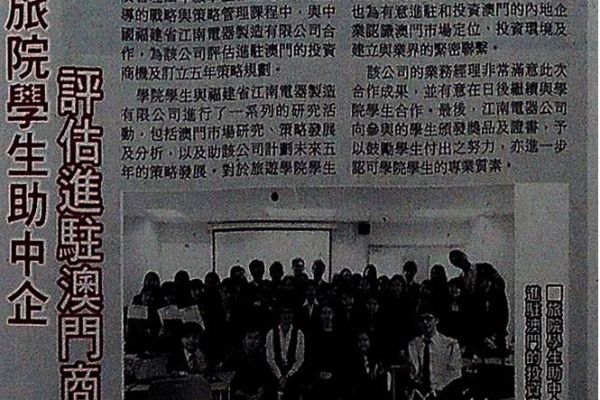 旅院學生助中企
評估進駐澳門商
導的戰略與策略管理課程中，與中
國福建省江南電器製造有限公司合
作，為該公司評估進駐澳門的投資
商機及訂立五年策略規劃。
學院學生與福建省江南電器製造
有限公司進行了一系列的研究活
動，包括澳門市場研究、策略發展
及分析，以及助該公司計劃未來五
年的策略發展。對於旅遊學院學生
也為有意進駐和投資澳門的內地企
業認識澳門市場定位，投資環境及
建立與業界的緊密聯繫。
該公司的業務經理非常滿意此次
合作成果，並有意在日後繼續與學
院學生合作。最後，江南電器公司
向參與的學生頒發獎品及證書，予
以鼓勵學生付出之努力，亦進一步
認可學院學生的專業質素。
■旅院學生助中
進駐澳門的投資